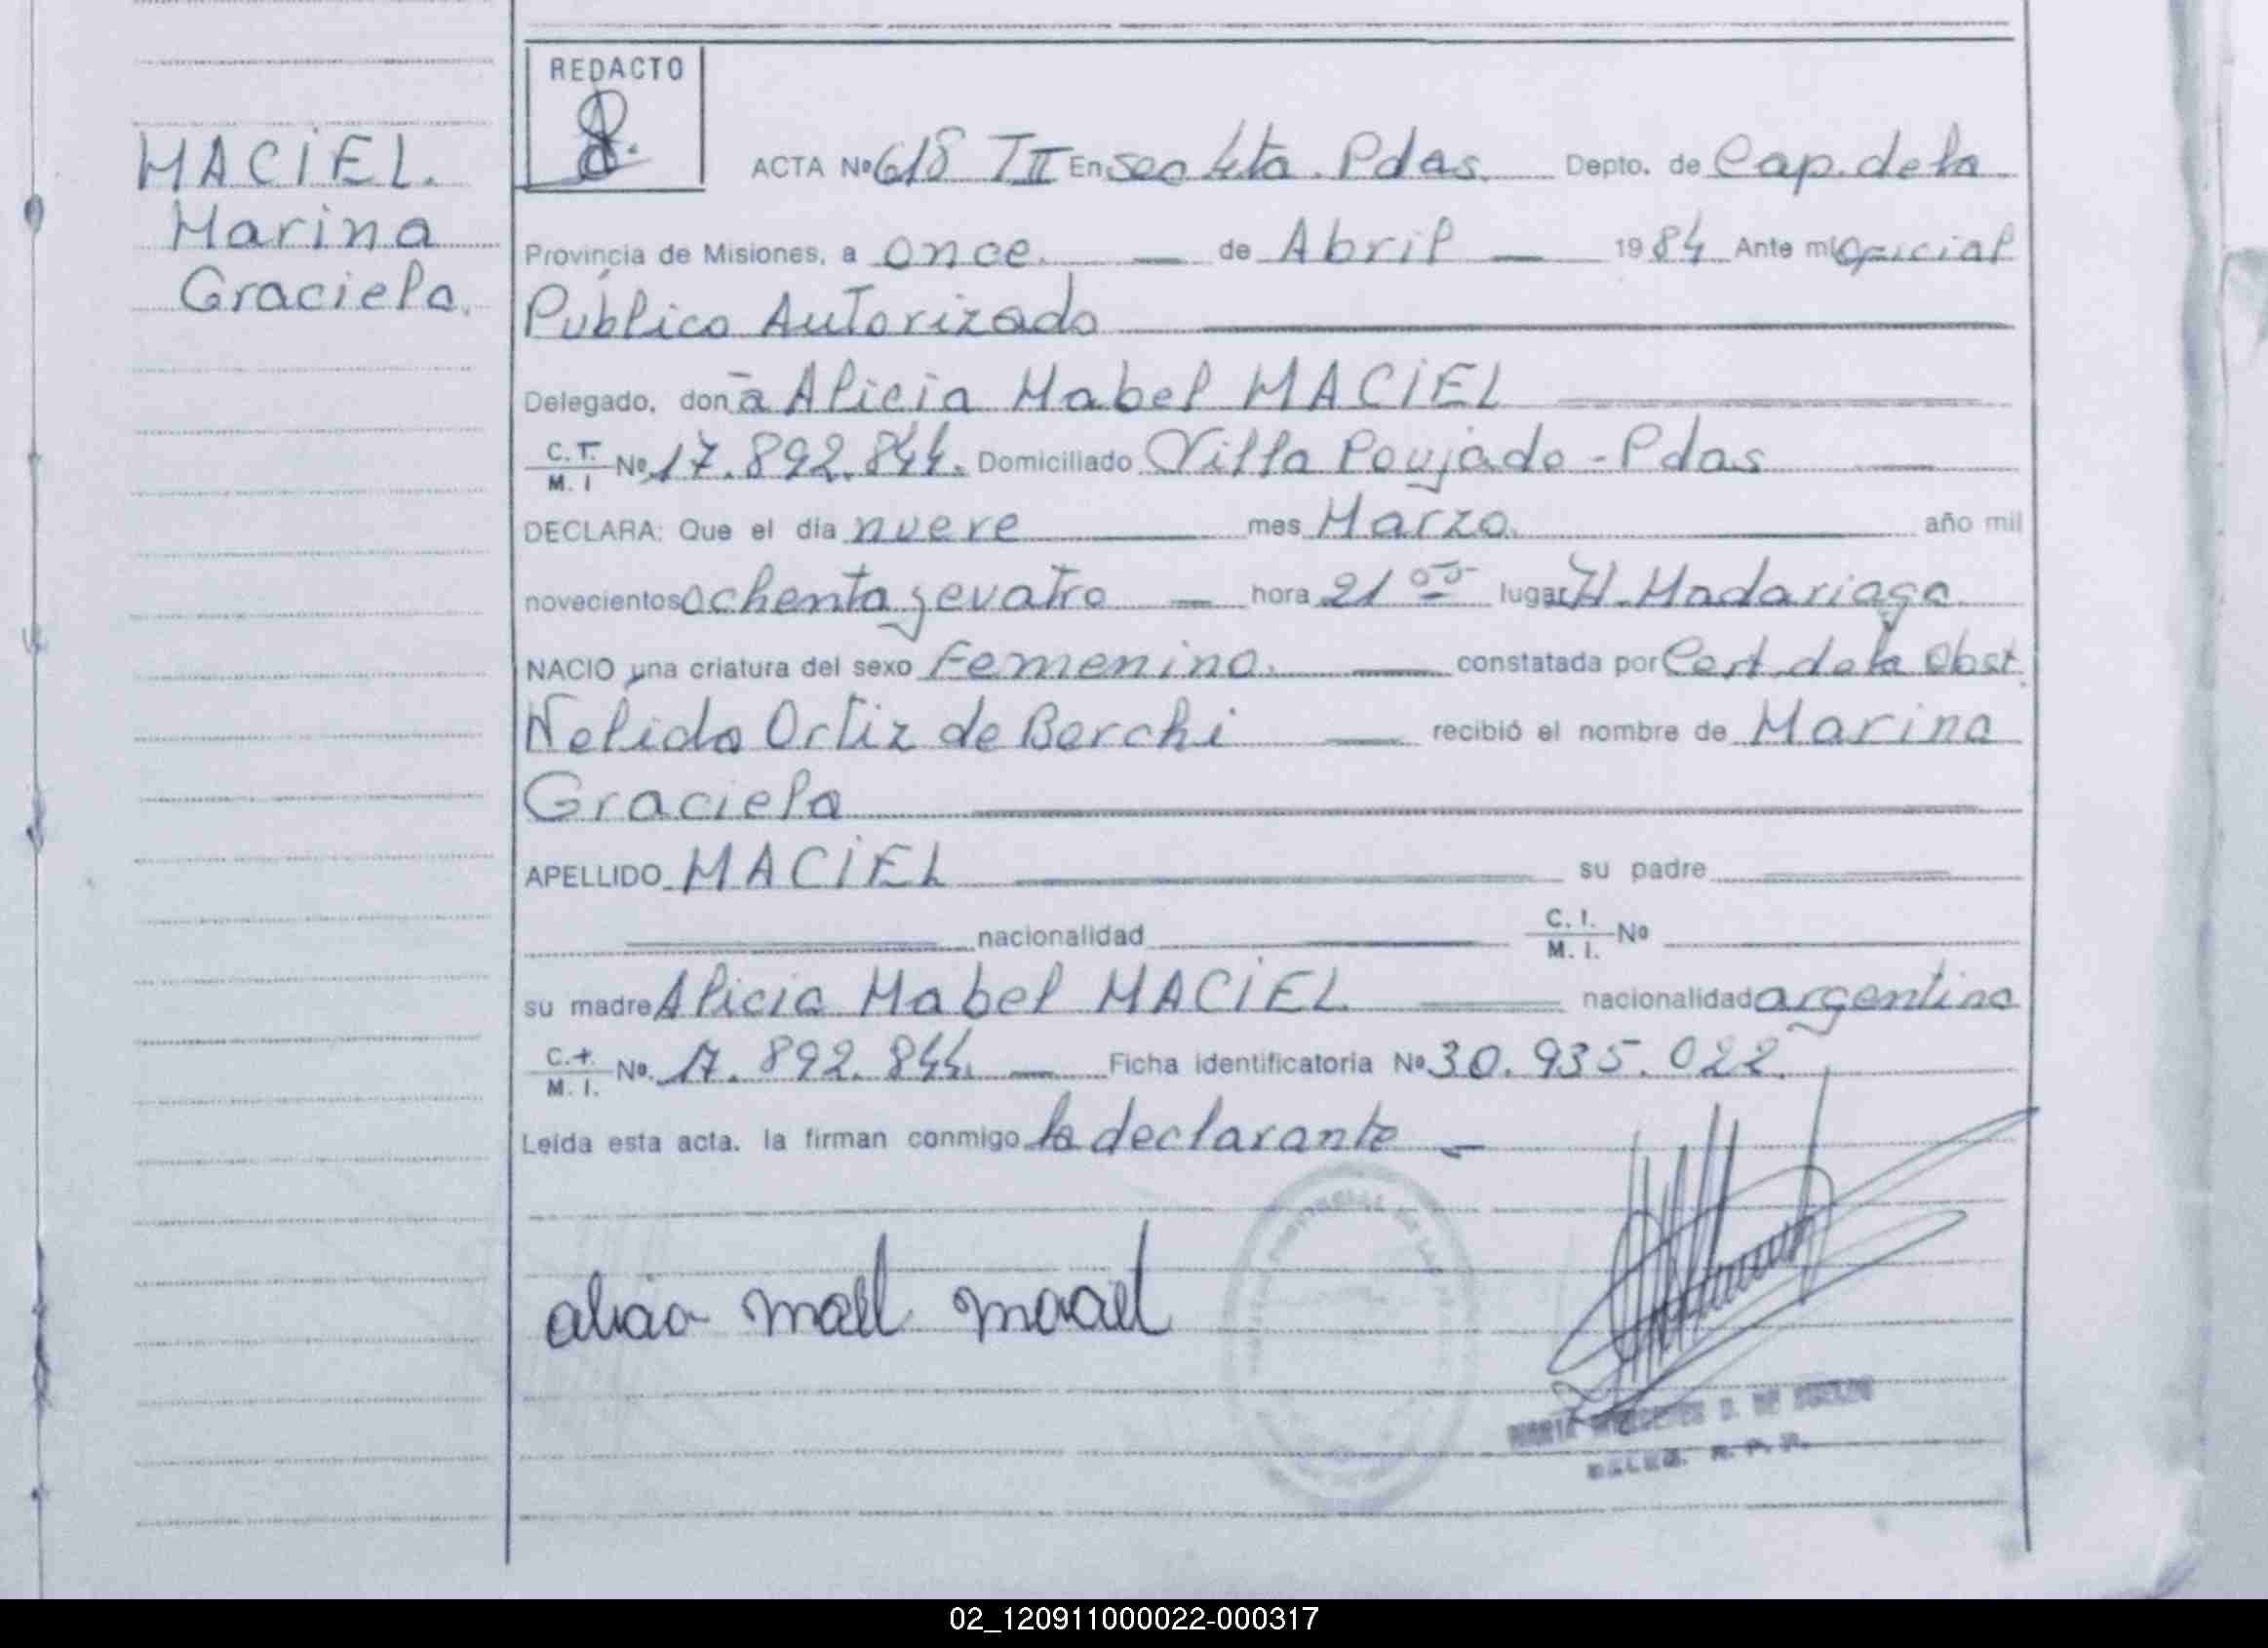 REDACTO
MACIEL.
Marina
Graciela.
ACTA Nº 618 TII En sec 4ta. Pdas. Depto. de Cap. de la
Provincia de Misiones, a once. — de Abril — 1984 Ante mí Oficial
Público Autorizado
Delegado, don a Alicia Mabel MACIEL
C.I. M. I Nº 17.892.844. Domiciliado Villa Poujade - Pdas
DECLARA: Que el día nueve mes Marzo. año mil
novecientos ochenta y cuatro — hora 21 00 lugar H. Madariaga
NACIO una criatura del sexo Femenino. constatada por Cert. de la Obst.
Nelida Ortiz de Berchi recibió el nombre de Marina
Graciela
APELLIDO MACIEL su padre
nacionalidad C. I. M. I. Nº
su madre Alicia Mabel MACIEL nacionalidad argentina
C.I. M. I. Nº. 17.892.844. — Ficha identificatoria Nº 30.935.022.
Leída esta acta. la firman conmigo la declarante —
DELEG. R. P. P.
02_120911000022-000317